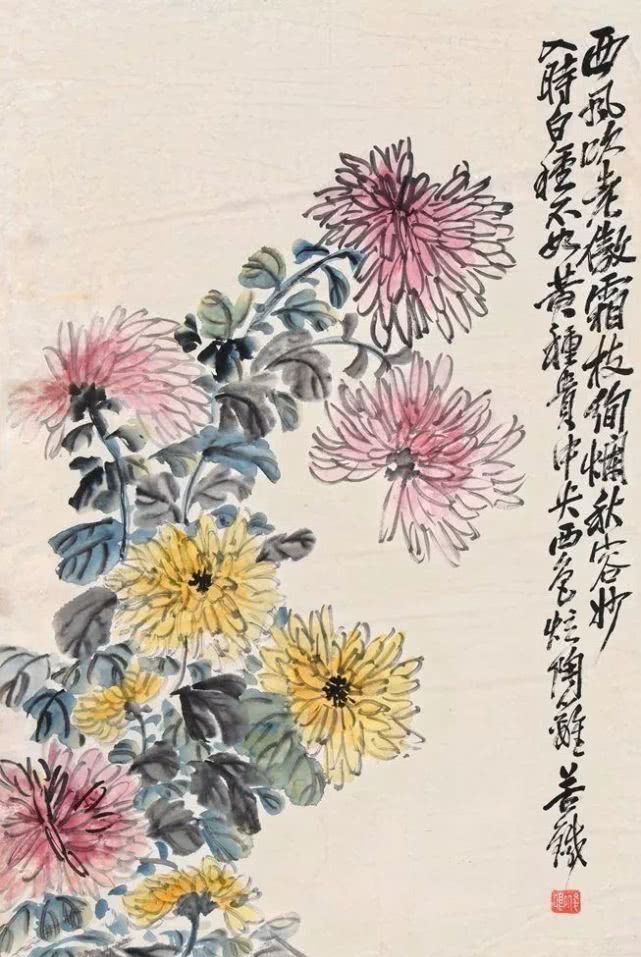 西風吹老傲霜枝絢爛秋容妙
入時白種不如黃種貴中央西色炫陶籬 苦鐵